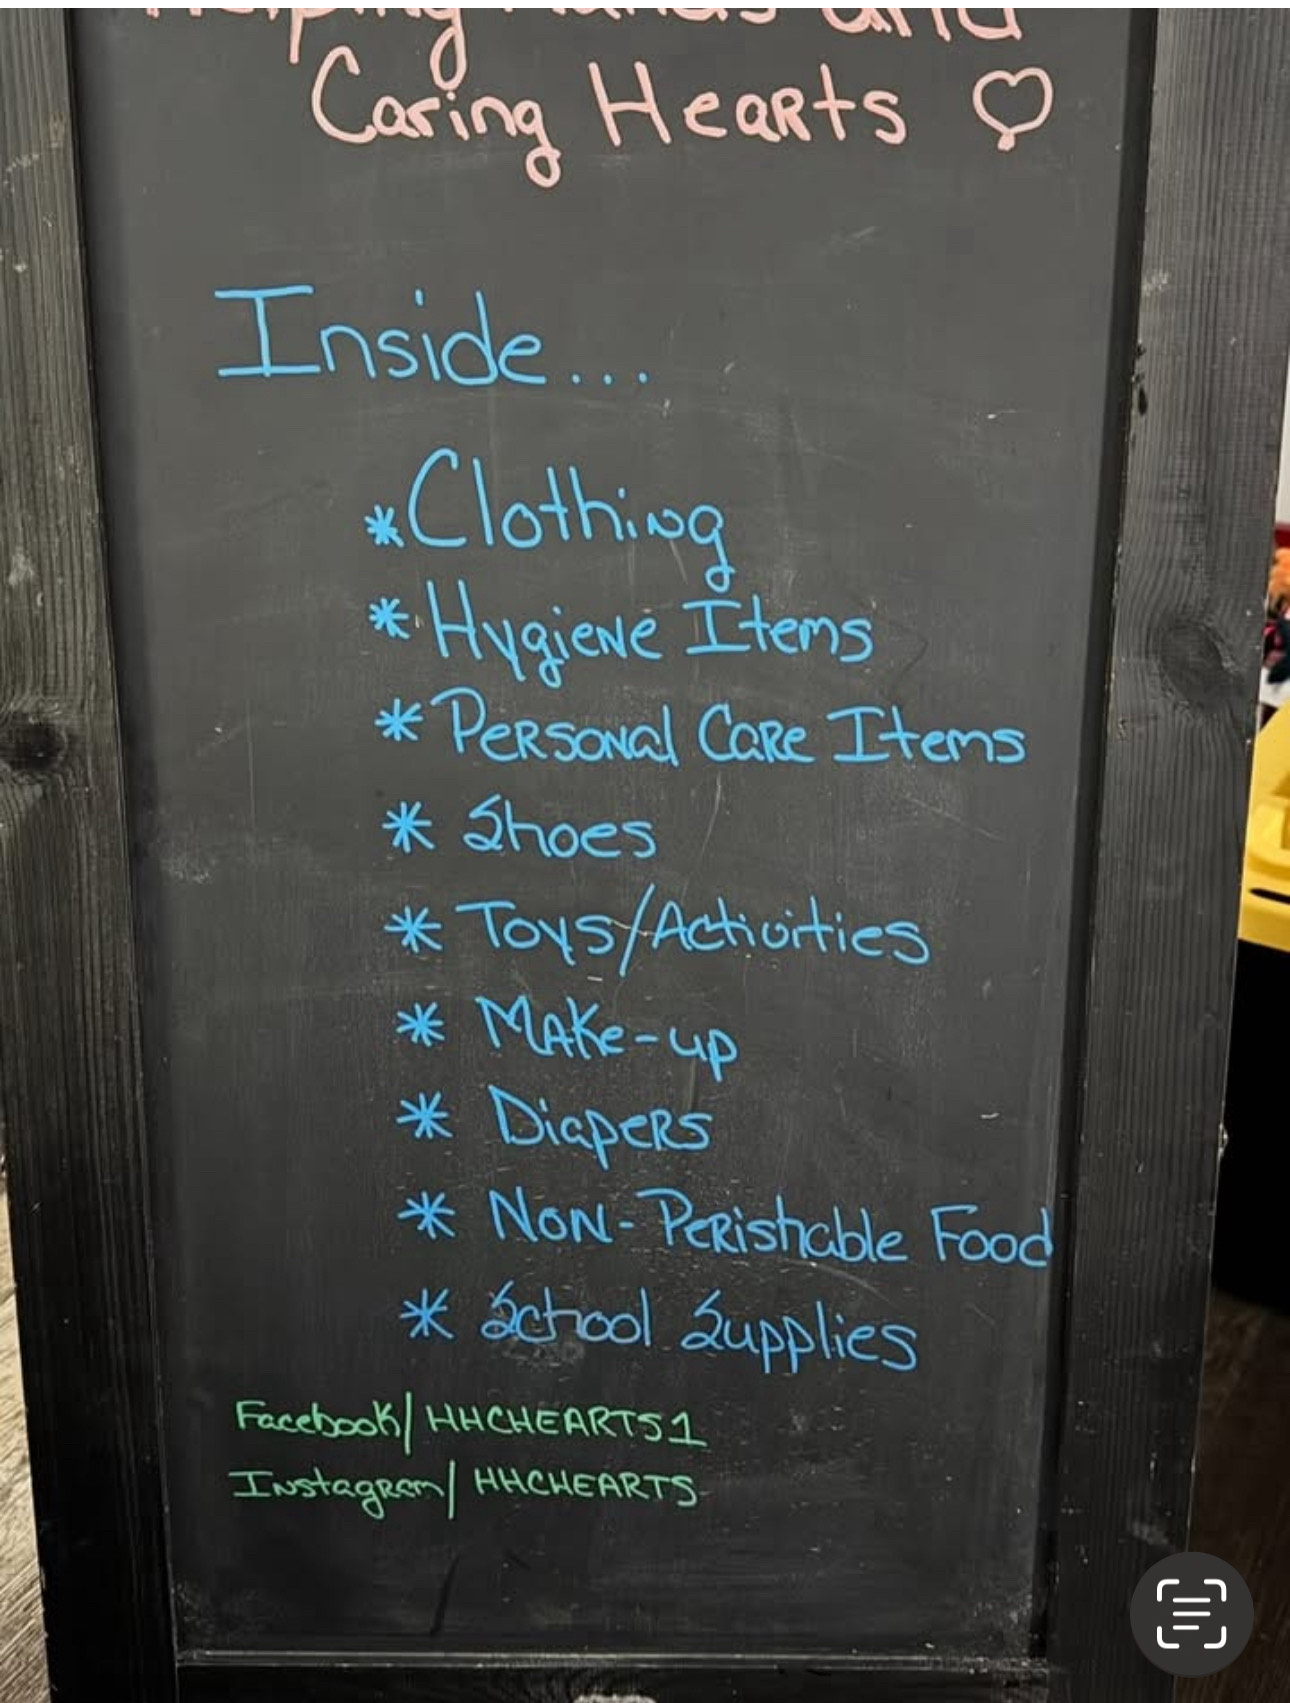 Helping Hands and
Caring Hearts
Inside...
* Clothing
* Hygiene Items
* Personal Care Items
* Shoes
* Toys/Activities
* Make-up
* Diapers
* Non-Perishable Food
* School Supplies
Facebook/ HHCHEARTS1
Instagram/ HHCHEARTS